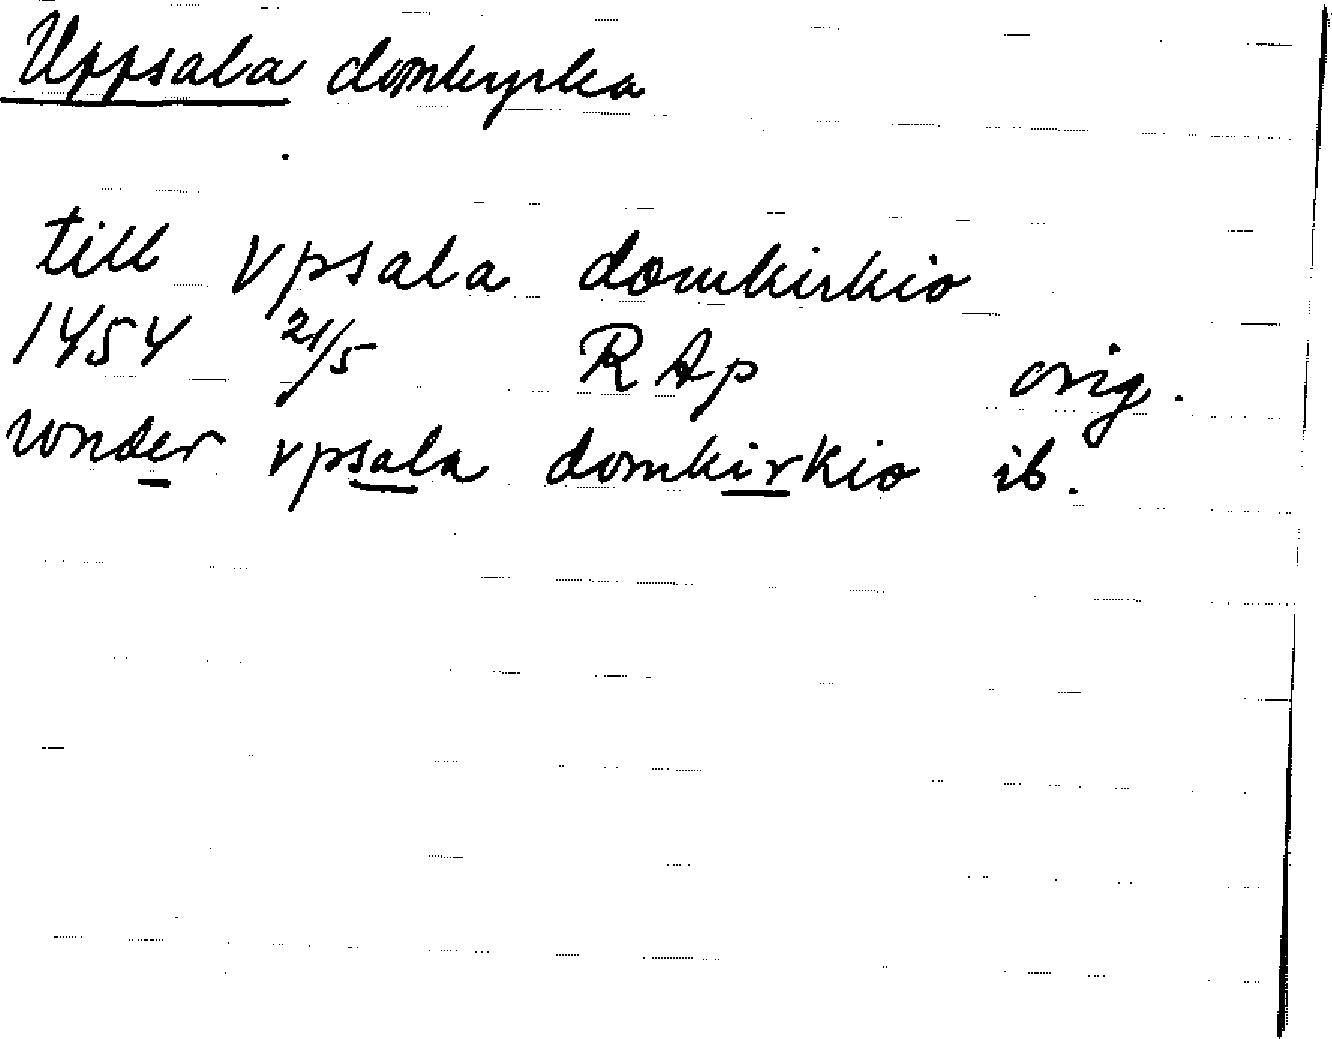 Uppsala domkyrka
till vpsala domkirkio
1454 21/5 RAp orig.
wnder vpsala domkirkio ib.